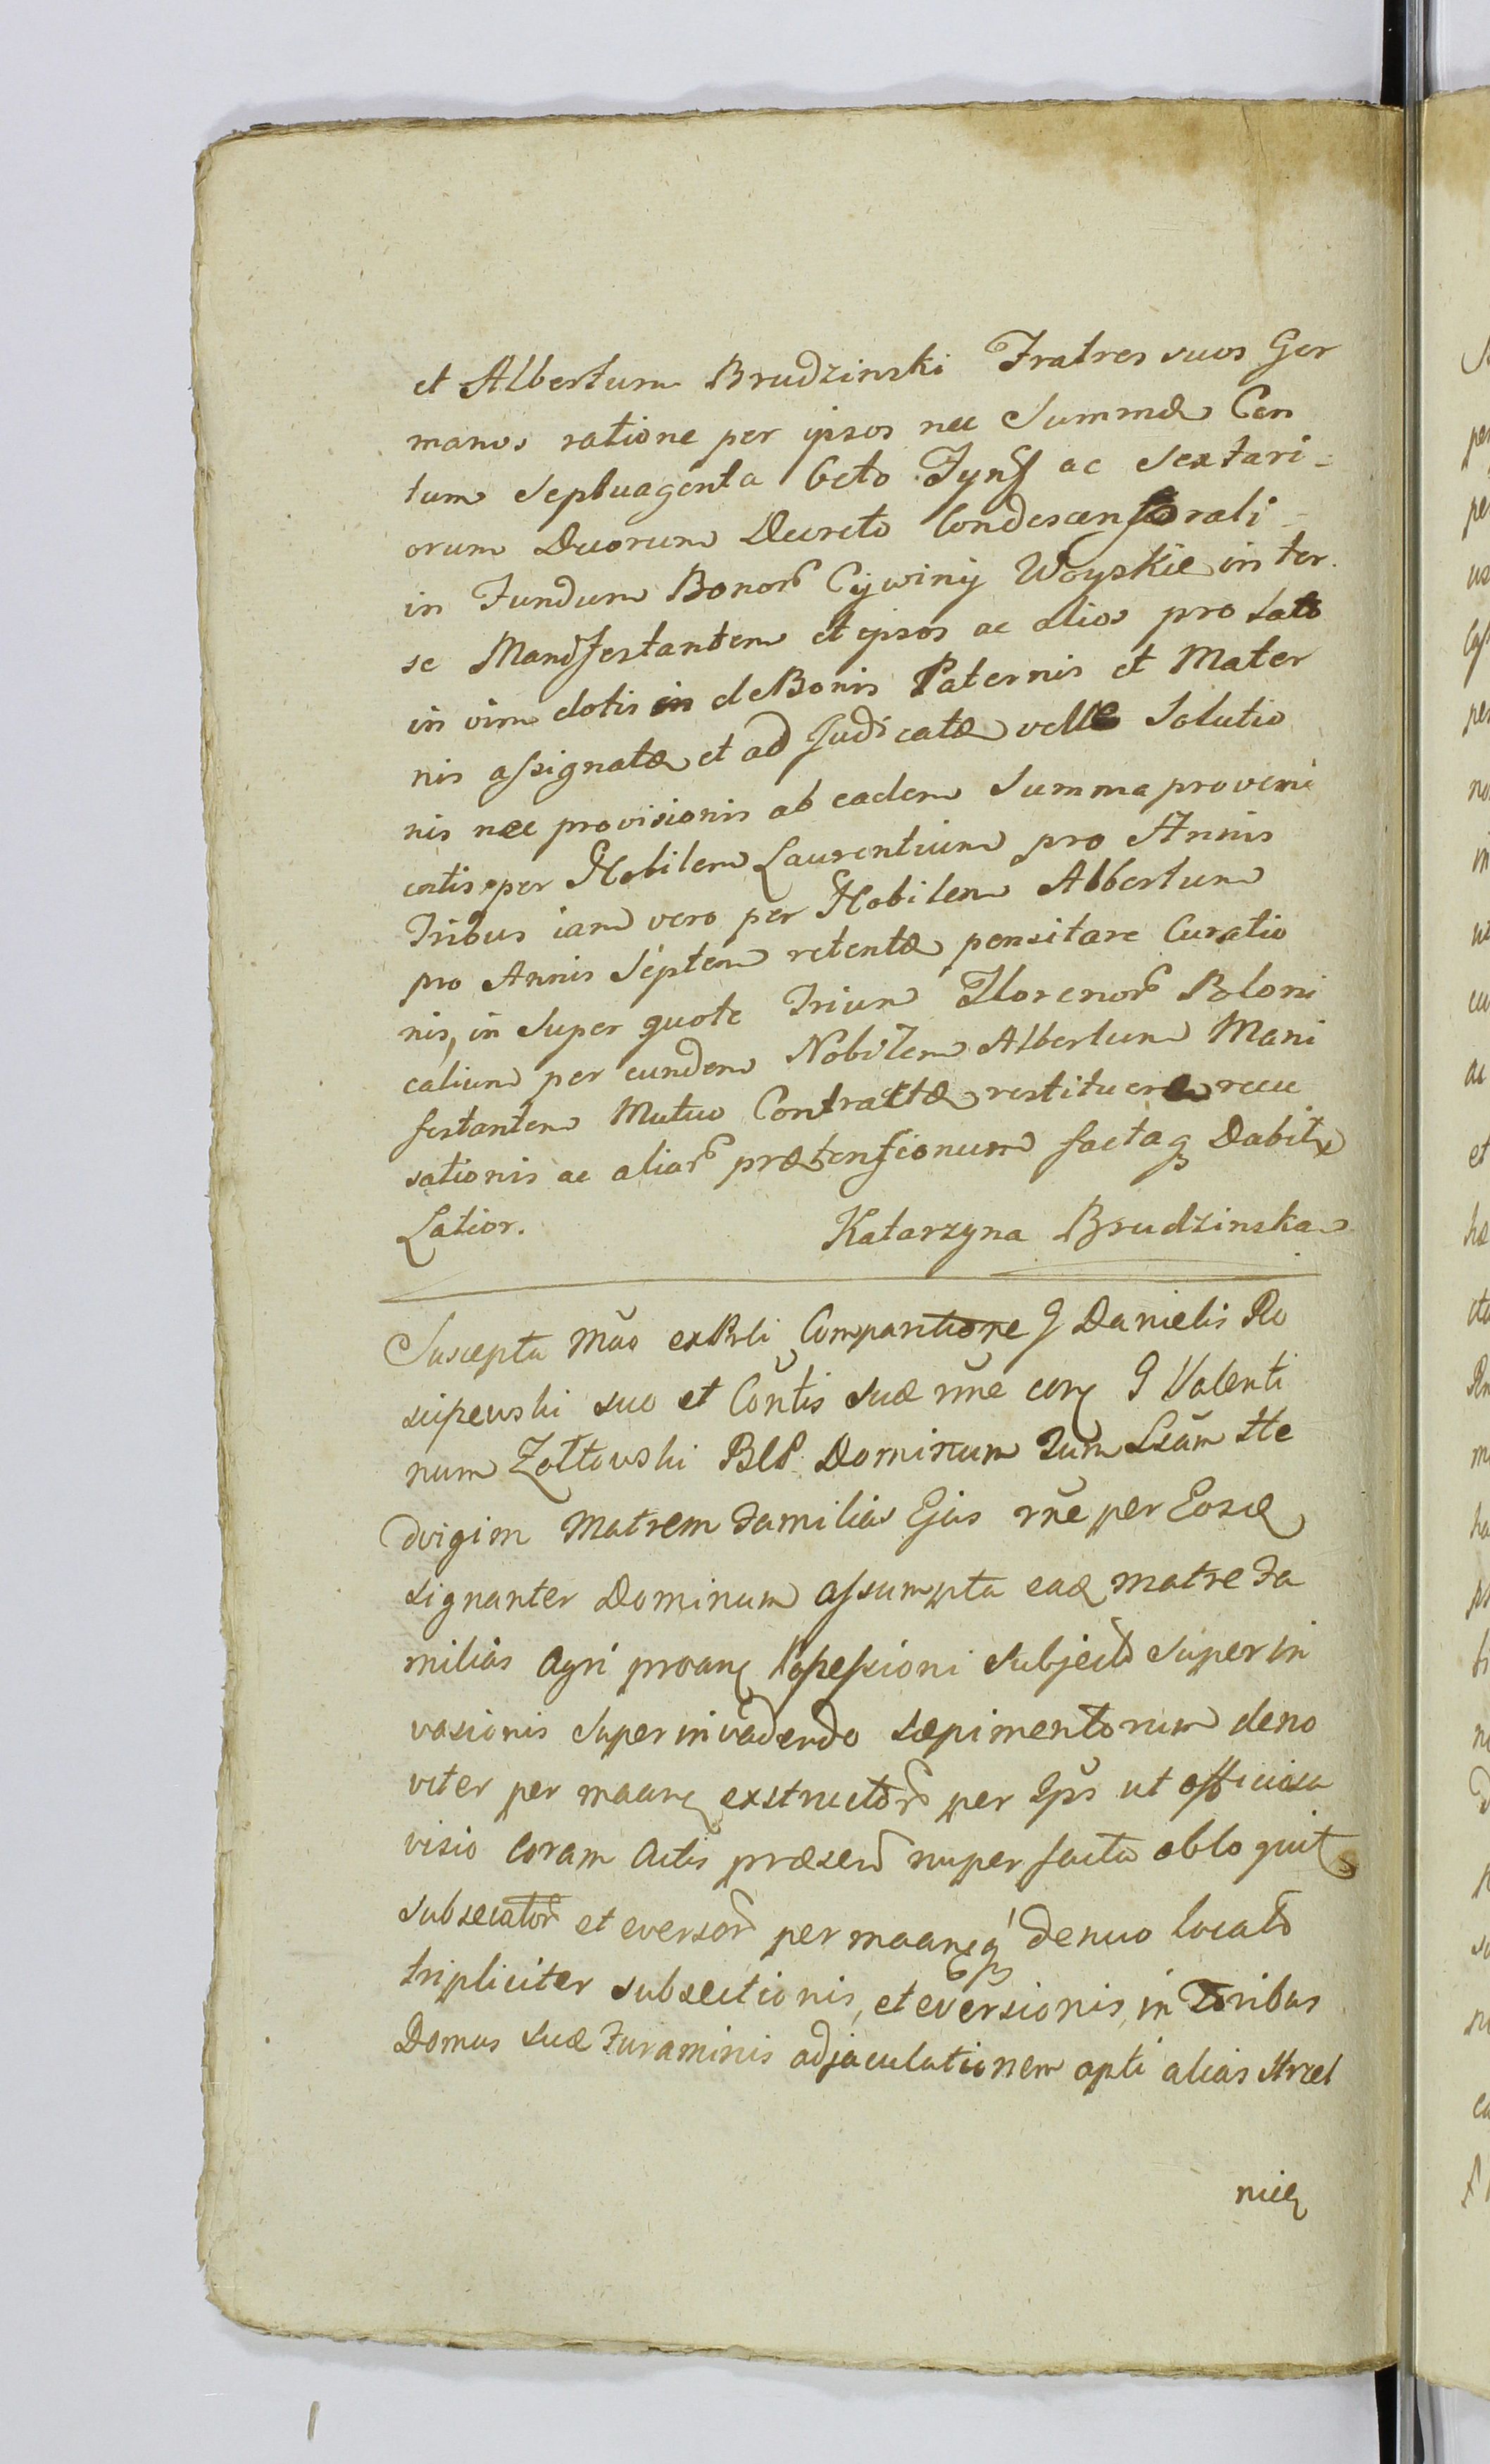 et Albertum Brudzinski Fratres suos Ger
manos ratione per ipsos nec Summæ Cen
tum Septuaginta Octo Tynf ac Sextari-
orum Duorum Decreto Condescensorali-
in Fundum Bonor Cywiny Woyskie inter
se Manifestantem et ipsos ac alios pro lato
in vim dotis in de Bonis Paternis et Mater
nis assignatæ et adjudicatæ velle Solutio
nis nec provisionis ab eadem Summa proveni
entis per Nobilem Laurentium pro Annis
Tribus iam vero per Nobilem Albertum
pro Annis Septem retentæ pensitare Curatio
nis, in super quote Trium Florenor Bloni
calium per eundem Nobilem Albertum Mani
festantem Mutuo Contractæ restituere recu
sationis ac aliar prætensionum factaq Dabitr
Latior. Katarzyna Brudzinska
Suscepta Mão ex Prli Comparitione G Danielis Ro
scipewski suo et Cõntis suæ nñe corq G Valenti
num Zołtowski Dominum tum Ste
dvigim Matrem familias Ejus rñe per Eosd
signanter Dominum assumpta eadq matre fa
milias Agri proanq Possessioni Subjecto Superin
vasionis Superinvadendo sæpimentorum deno
viter per maanq exstructor per Ips ut officiosa
visio Coram Actis præsen nuper facta obloquit
subsecator et eversor per maanq denuo locato
tripliciter subsectionis, et eversionis, in Foribus
Domus suæ Furaminis adjaculationem apti alias Strzel
nicq